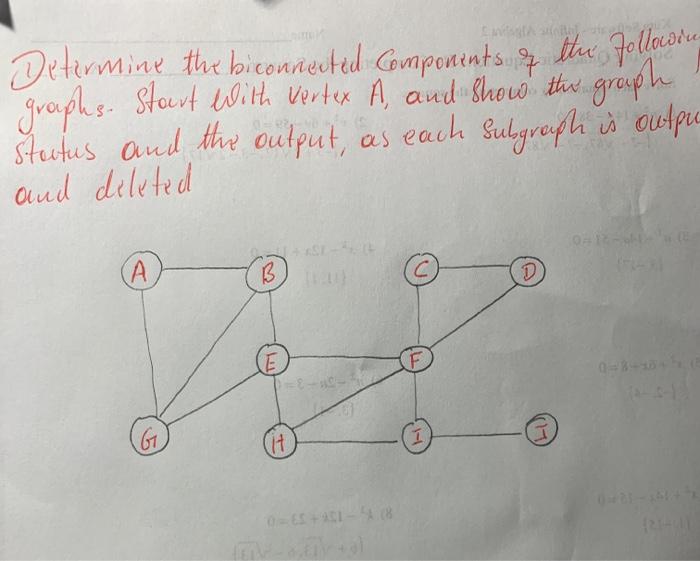 ① Determine the biconnected Components of the following
graphs. Start With Vertex A, and Show the graph
Status and the output, as each Subgraph is outpu
and deleted
A B C D
E F
G H I J